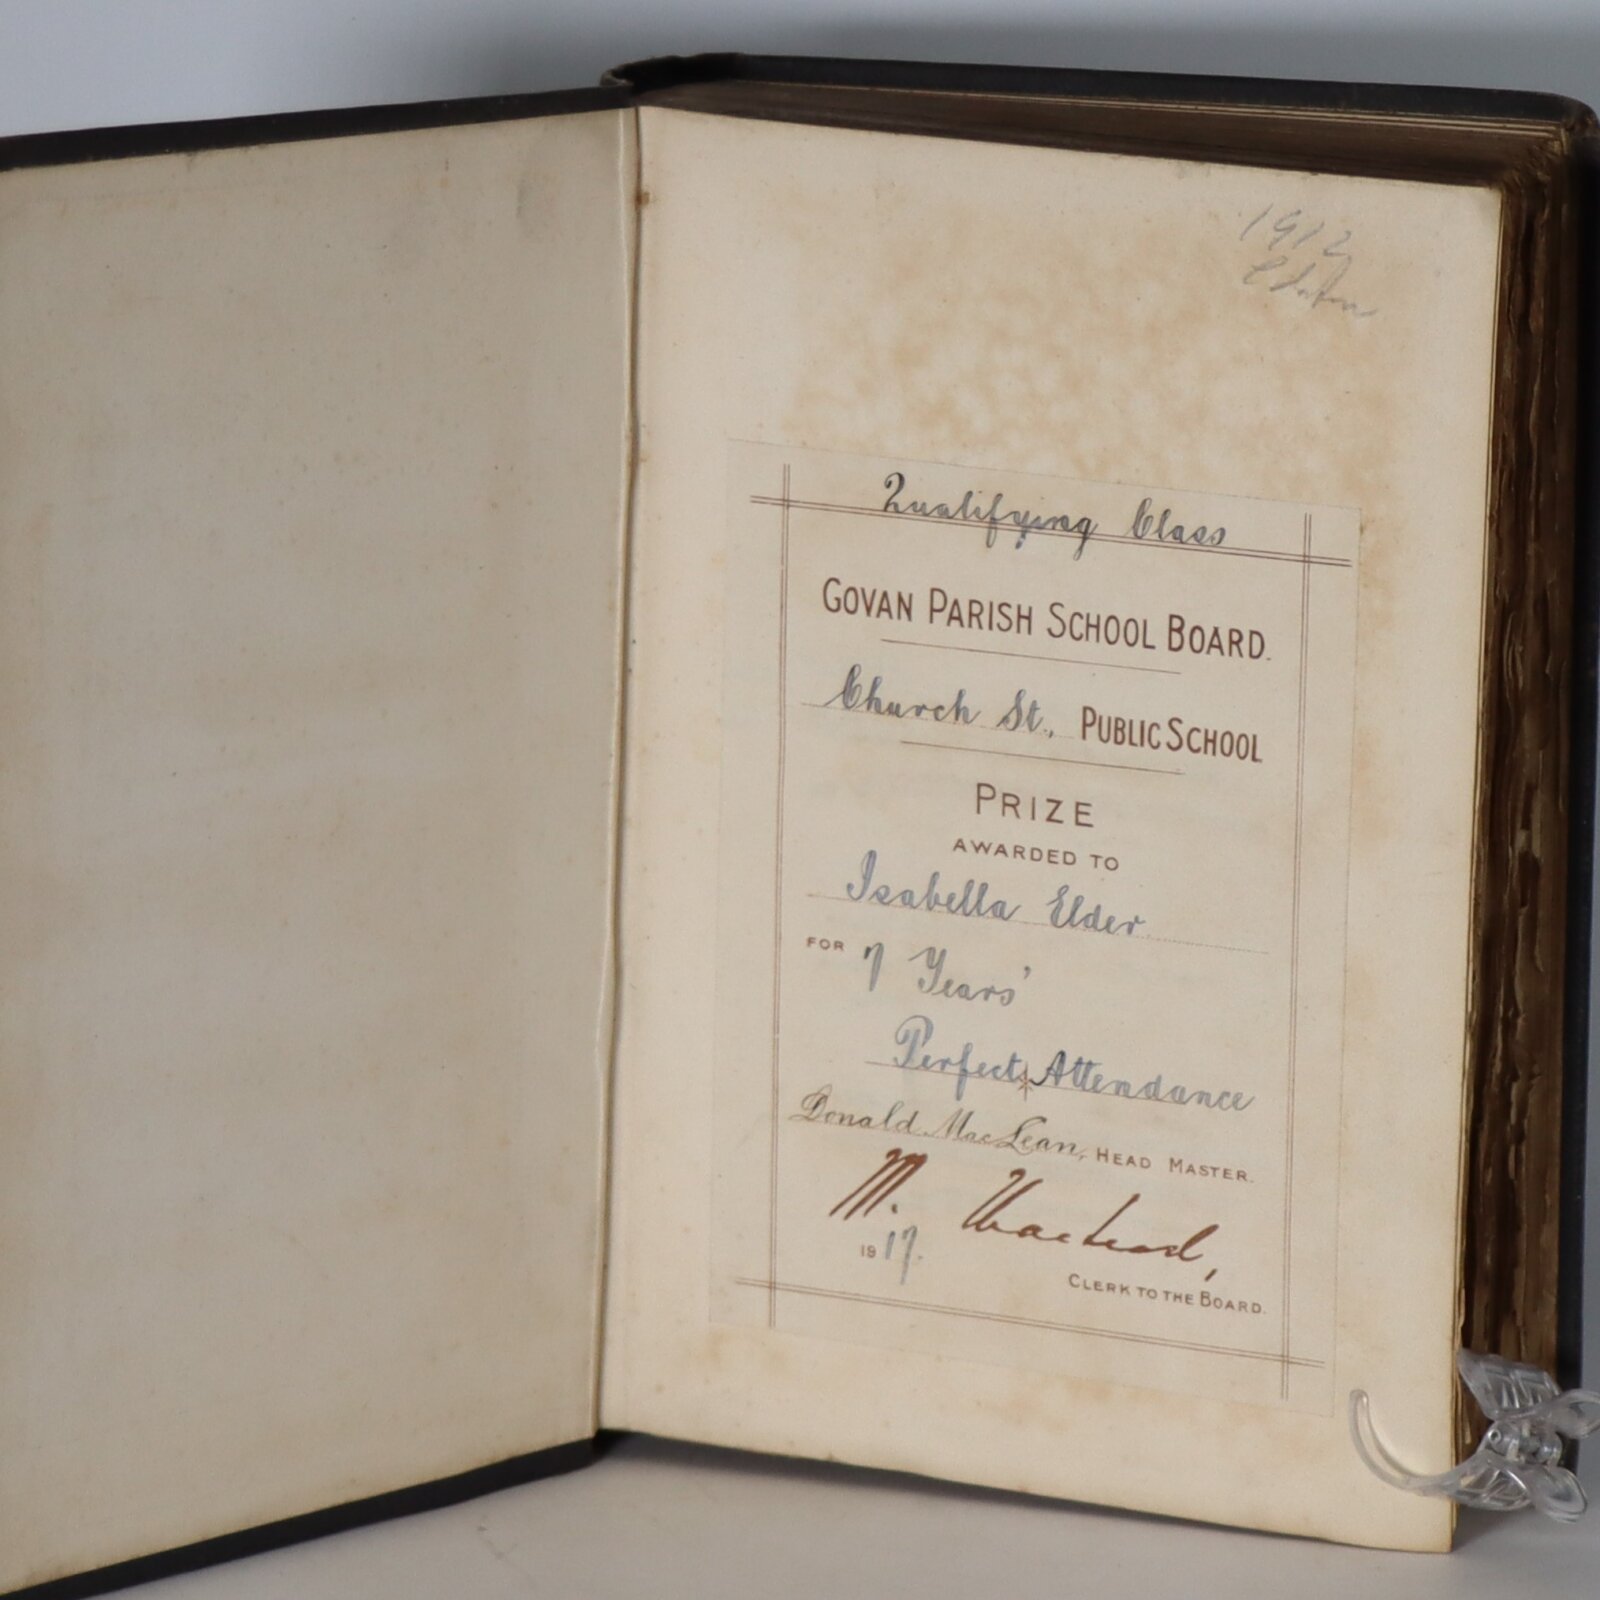 1912
Edition
Qualifying Class
GOVAN PARISH SCHOOL BOARD.
Church St., PUBLIC SCHOOL
PRIZE
AWARDED TO
Isabella Elder
FOR 7 Years'
Perfect Attendance
Donald MacLean, HEAD MASTER.
M. Macleod,
1917.
CLERK TO THE BOARD.